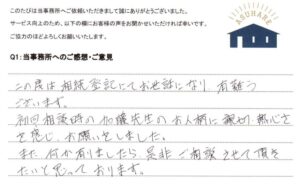 このたびは当事務所へご依頼いただきまして誠にありがとうございました。
サービス向上のため、以下の欄にお客様の声をお聞かせいただければ幸いです。
ご協力のほどよろしくお願いいたします。
ASUHARE
Q1:当事務所へのご感想・ご意見
この度は相続登記にてお世話になり 有難う
ございます。
初回相談時の加藤先生のお人柄に 親切、熱心さ
を感じ、お願いをしました。
また 何か有りましたら 是非 ご相談 させて頂き
たいと思っております。